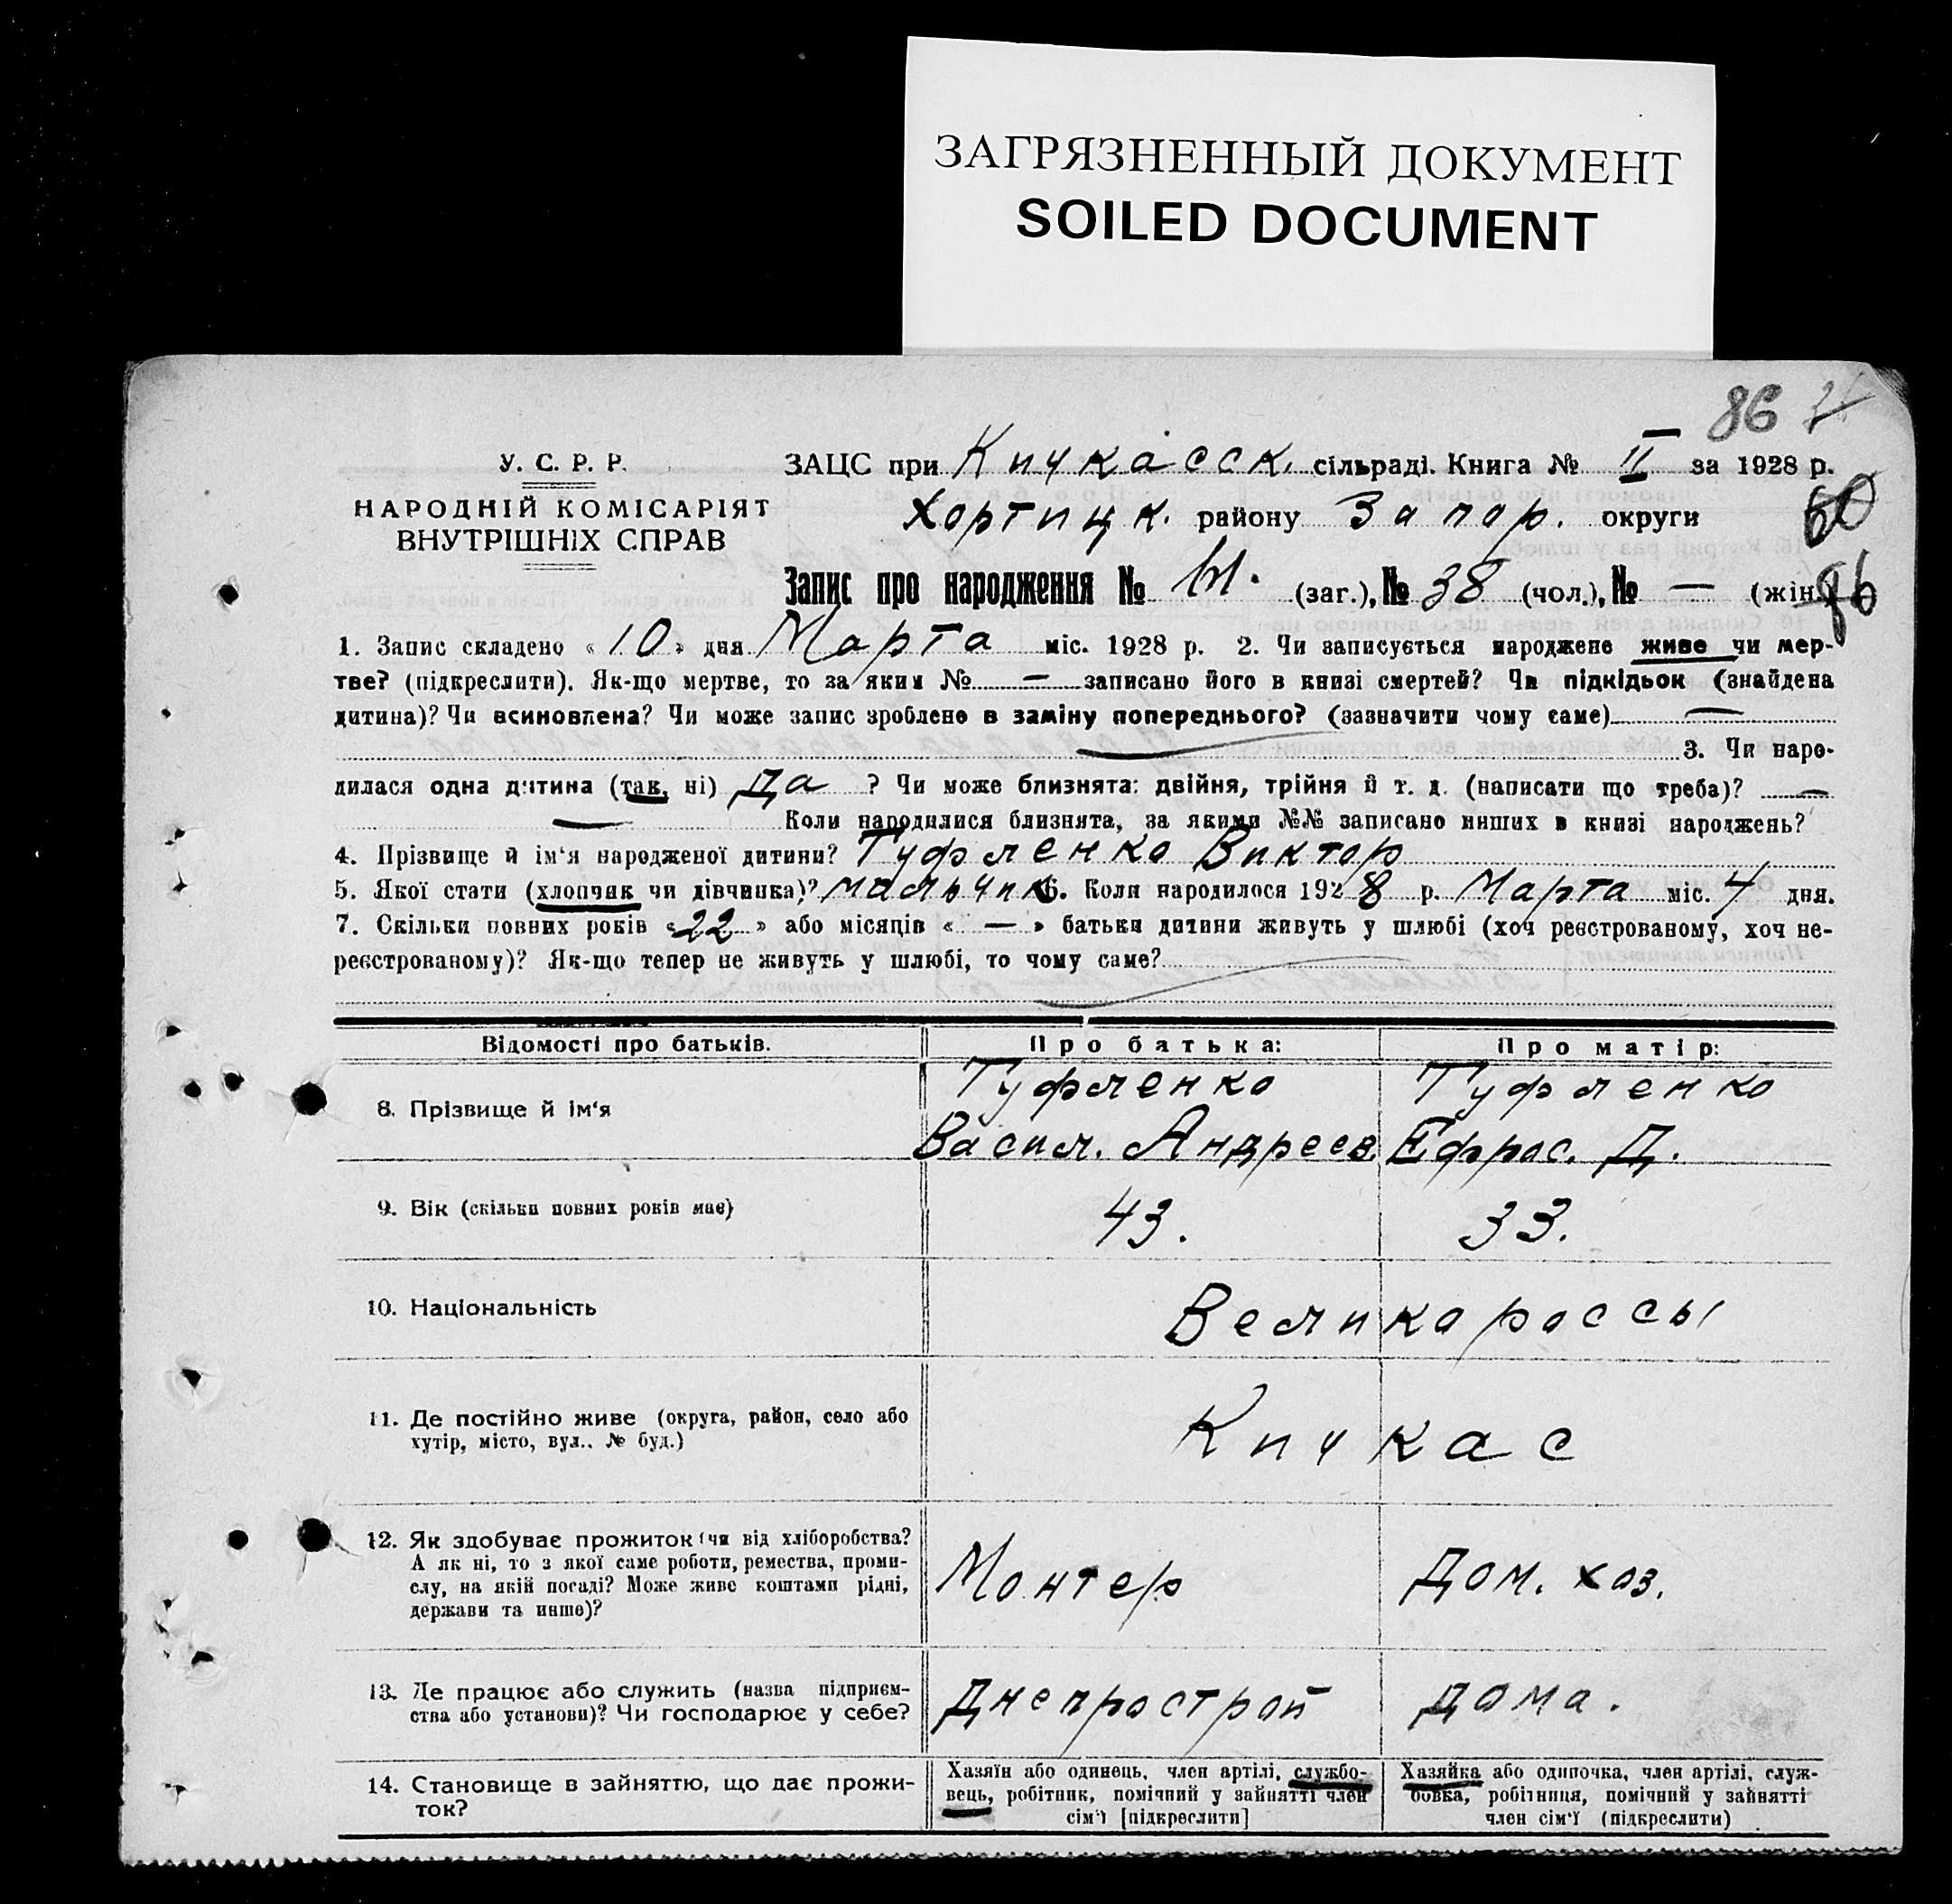 ЗАГРЯЗНЕННЫЙ ДОКУМЕНТ
SOILED DOCUMENT
86
У. С. Р. Р.
НАРОДНІЙ КОМІСАРІЯТ
ВНУТРІШНІХ СПРАВ
ЗАЦС при Кичкасск. сільраді. Книга № II за 1928 р.
Хортицк. району Запор. округи
60
Запис про народження № (заг.), № 38 (чол.), № — (жін.)
86
1. Запис складено «10» дня Марта міс. 1928 р. 2. Чи записується народжене живе чи мер-
тве? (підкреслити). Як-що мертве, то за яким № — записано його в книзі смертей? Чи підкідьок (знайдена
дитина)? Чи всиновлена? Чи може запис зроблено в заміну попереднього? (зазначити чому саме) —
— 3. Чи наро-
дилася одна дитина (так, ні) да ? Чи може близнята: двійня, трійня й т. д. (написати що треба)? —
— Коли народилися близнята, за якими №№ записано инших в книзі народжень?
4. Прізвище й ім'я народженої дитини? Туфленко Виктор
5. Якої стати (хлопчик чи дівчинка)? мальчик 6. Коли народилося 1928 р. Марта міс. 4 дня.
7. Скільки повних років «22» або місяців « — » батьки дитини живуть у шлюбі (хоч реєстрованому, хоч не-
реєстрованому)? Як-що тепер не живуть у шлюбі, то чому саме?
Відомості про батьків. Про батька: Про матір:
8. Прізвище й ім'я Туфленко Васил. Андреев. Туфленко Ефрос. Д.
9. Вік (скільки повних років має) 43. 33.
10. Національність Великороссы
11. Де постійно живе (округа, район, село або
хутір, місто, вул.. № буд.) Кичкас
12. Як здобуває прожиток (чи від хліборобства?
А як ні, то з якої саме роботи, ремества, проми-
слу, на якій посаді? Може живе коштами рідні,
держави та инше)? Монтер Дом. хоз.
13. Де працює або служить (назва підприєм-
ства або установи)? Чи господарює у себе? Днепрострой дома.
14. Становище в зайняттю, що дає прожи-
ток?
Хазяїн або одинець, член артілі, службо-
вець, робітник, помічний у зайнятті член
сім'ї [підкреслити]
Хазяйка або одиночка, член артілі, служ-
бовка, робітниця, помічний у зайнятті
член сім'ї (підкреслити)